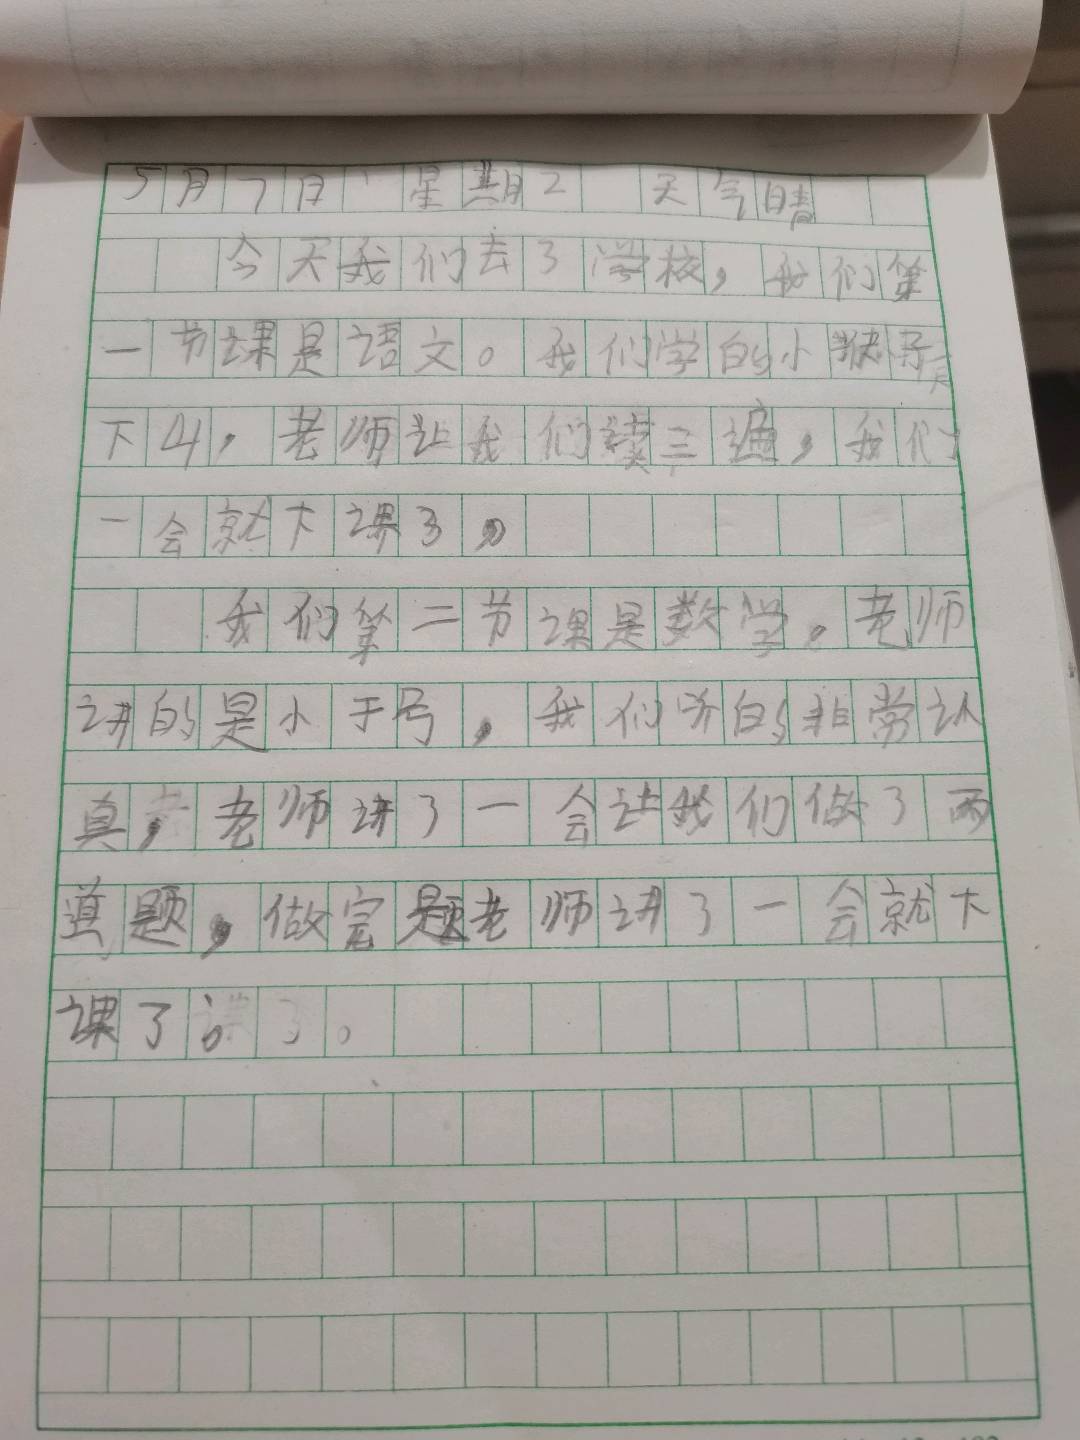 5月7日 星期二 天气晴
今天我们去了学校，我们第
一节课是语文。我们学的小猴子
下山，老师让我们读三遍，我们
一会就下课了。
我们第二节课是数学。老师
讲的是小于号，我们听的非常认
真，老师讲了一会让我们做了两
道题，做完题老师讲了一会就下
课了。